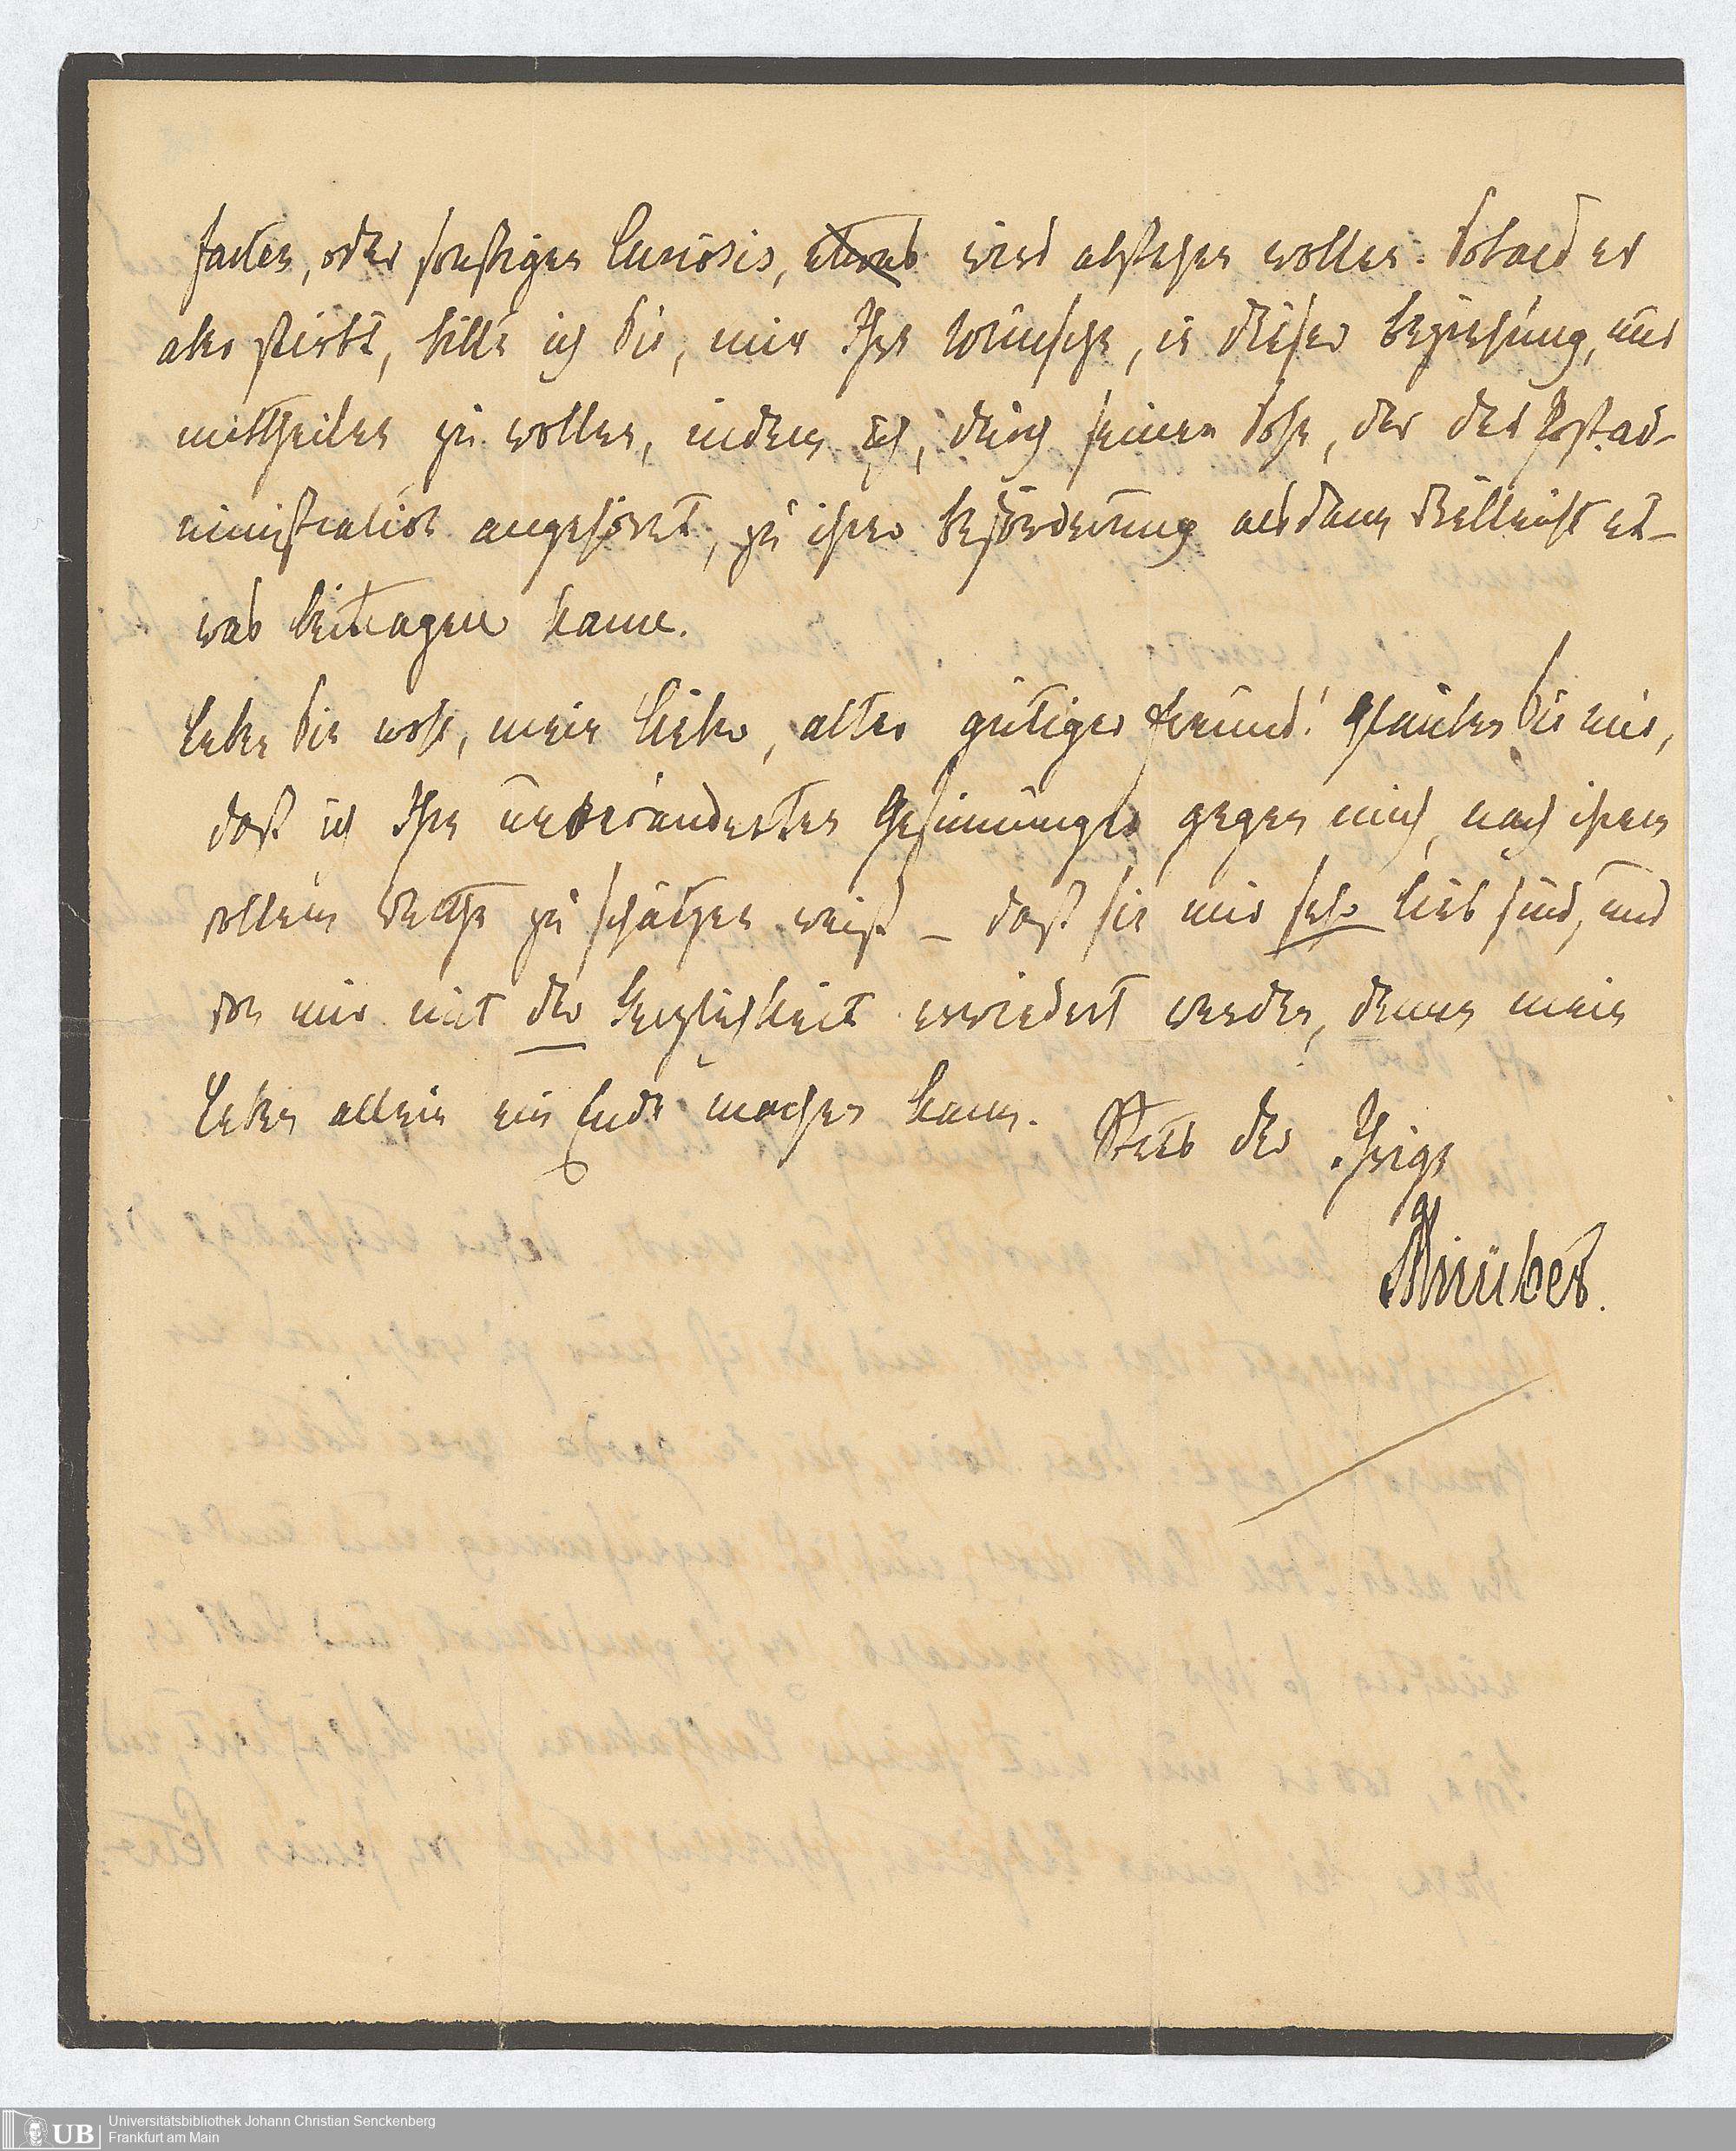 facten, oder sonstigen Curiosis, etwas wird abstehen wollen. Sobald er
also stirbt, bitte ich Sie, mir Ihre Wünsche, in dieser Beziehung, nur
mittheilen zu wollen, indem ich, durch seinen Sohn, der der Postad-
ministration angehöret, zu ihrer Beförderung alsdann vielleicht et-
was beitragen kann.
Leben Sie wohl, mein lieber, alter gütiger Freund! Glauben Sie mir,
daß ich Ihre unveränderten Gesinnungen gegen mich, nach ihrem
vollem Werthe zu schätzen weiß – daß sie mir sehr lieb sind, und
von mir mit der Herzlichkeit erwiedert werden, denen mein
Leben allein ein Ende machen kann. Stets der Ihrige
Universitätsbibliothek Johann Christian Senckenberg
Frankfurt am Main
UB